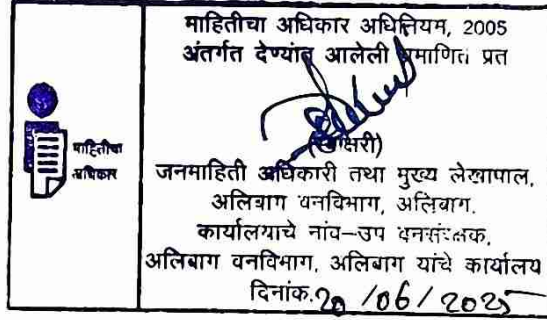 माहितीचा अधिकार अधिनियम, 2005
अंतर्गत देण्यांत आलेली प्रमाणित प्रत
(स्वाक्षरी)
माहितीचा
अधिकार
जनमाहिती अधिकारी तथा मुख्य लेखापाल,
अलिबाग वनविभाग, अलिबाग.
कार्यालयाचे नांव–उप वनसंरक्षक,
अलिबाग वनविभाग, अलिबाग यांचे कार्यालय
दिनांक.20/06/2025